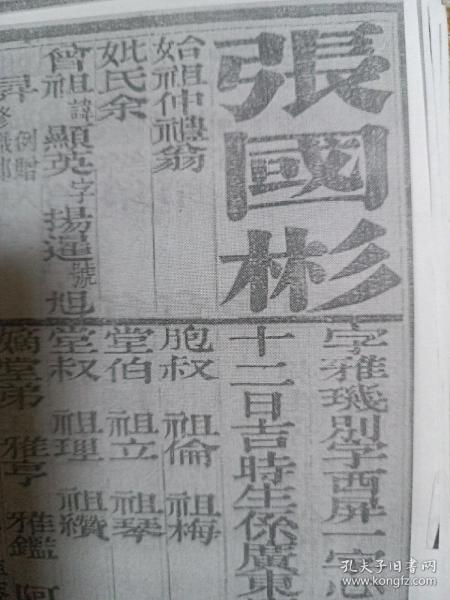 張國彬
字雅璣別字西屏一字心
十二日吉時生係廣東
始祖仲禮翁
妣氏余
曾祖諱顯英字揚暹號旭
昇例贈
胞叔 祖倫 祖梅
堂伯 祖立 祖琴
堂叔 祖理 祖纘
嫡堂弟 雅亨 雅鑑
孔夫子旧书网